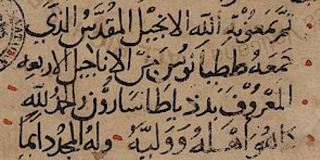 تم بمعونة الله الانجيل المقدس الذي
جمعه ططيانوس من الاناجيل الاربعه
المعروف بدياطاسارون والحمد لله
كما هو اهله ووليه وله المجد دايما